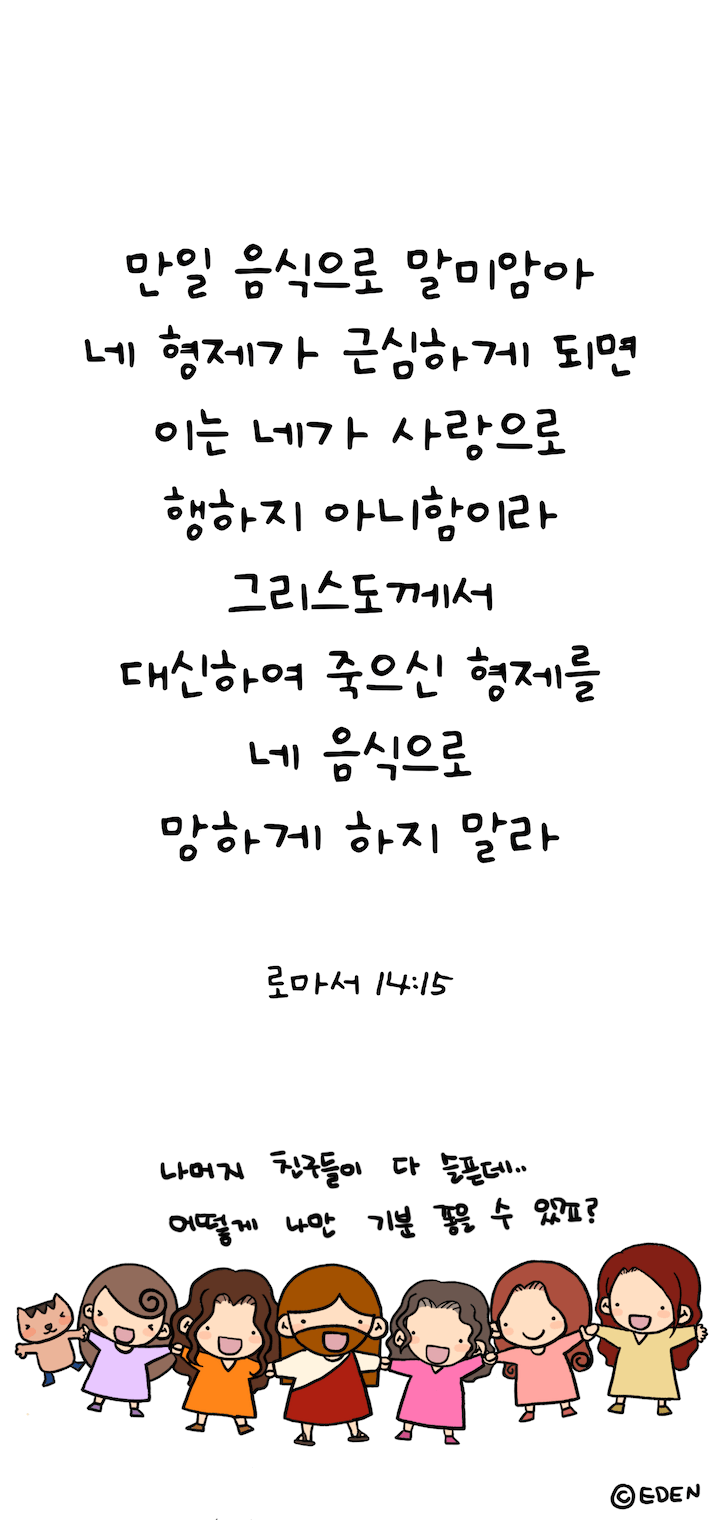 만일 음식으로 말미암아
네 형제가 근심하게 되면
이는 네가 사랑으로
행하지 아니함이라
그리스도께서
대신하여 죽으신 형제를
네 음식으로
망하게 하지 말라
로마서 14:15
나머지 친구들이 다 슬픈데..
어떻게 나만 기분 좋을 수 있fㅍ?
©EDEN